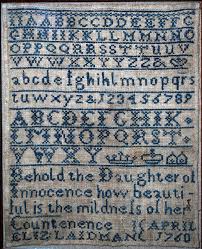 AABBCCDDEEFFG
GHHIIKKLLMMNNO
OPPQQRRSSTTUUV
VWWXXYYZZ&
abcdefghiklmnopqrs
tuwxyz&123456789
ABCDEFGHIK
LMNOPQRST
VWXY
Behold the Daughter of
Innocence how beauti-
ful is the mildness of her
Countenence APRIL
ELIZ LAIDMAN 1760